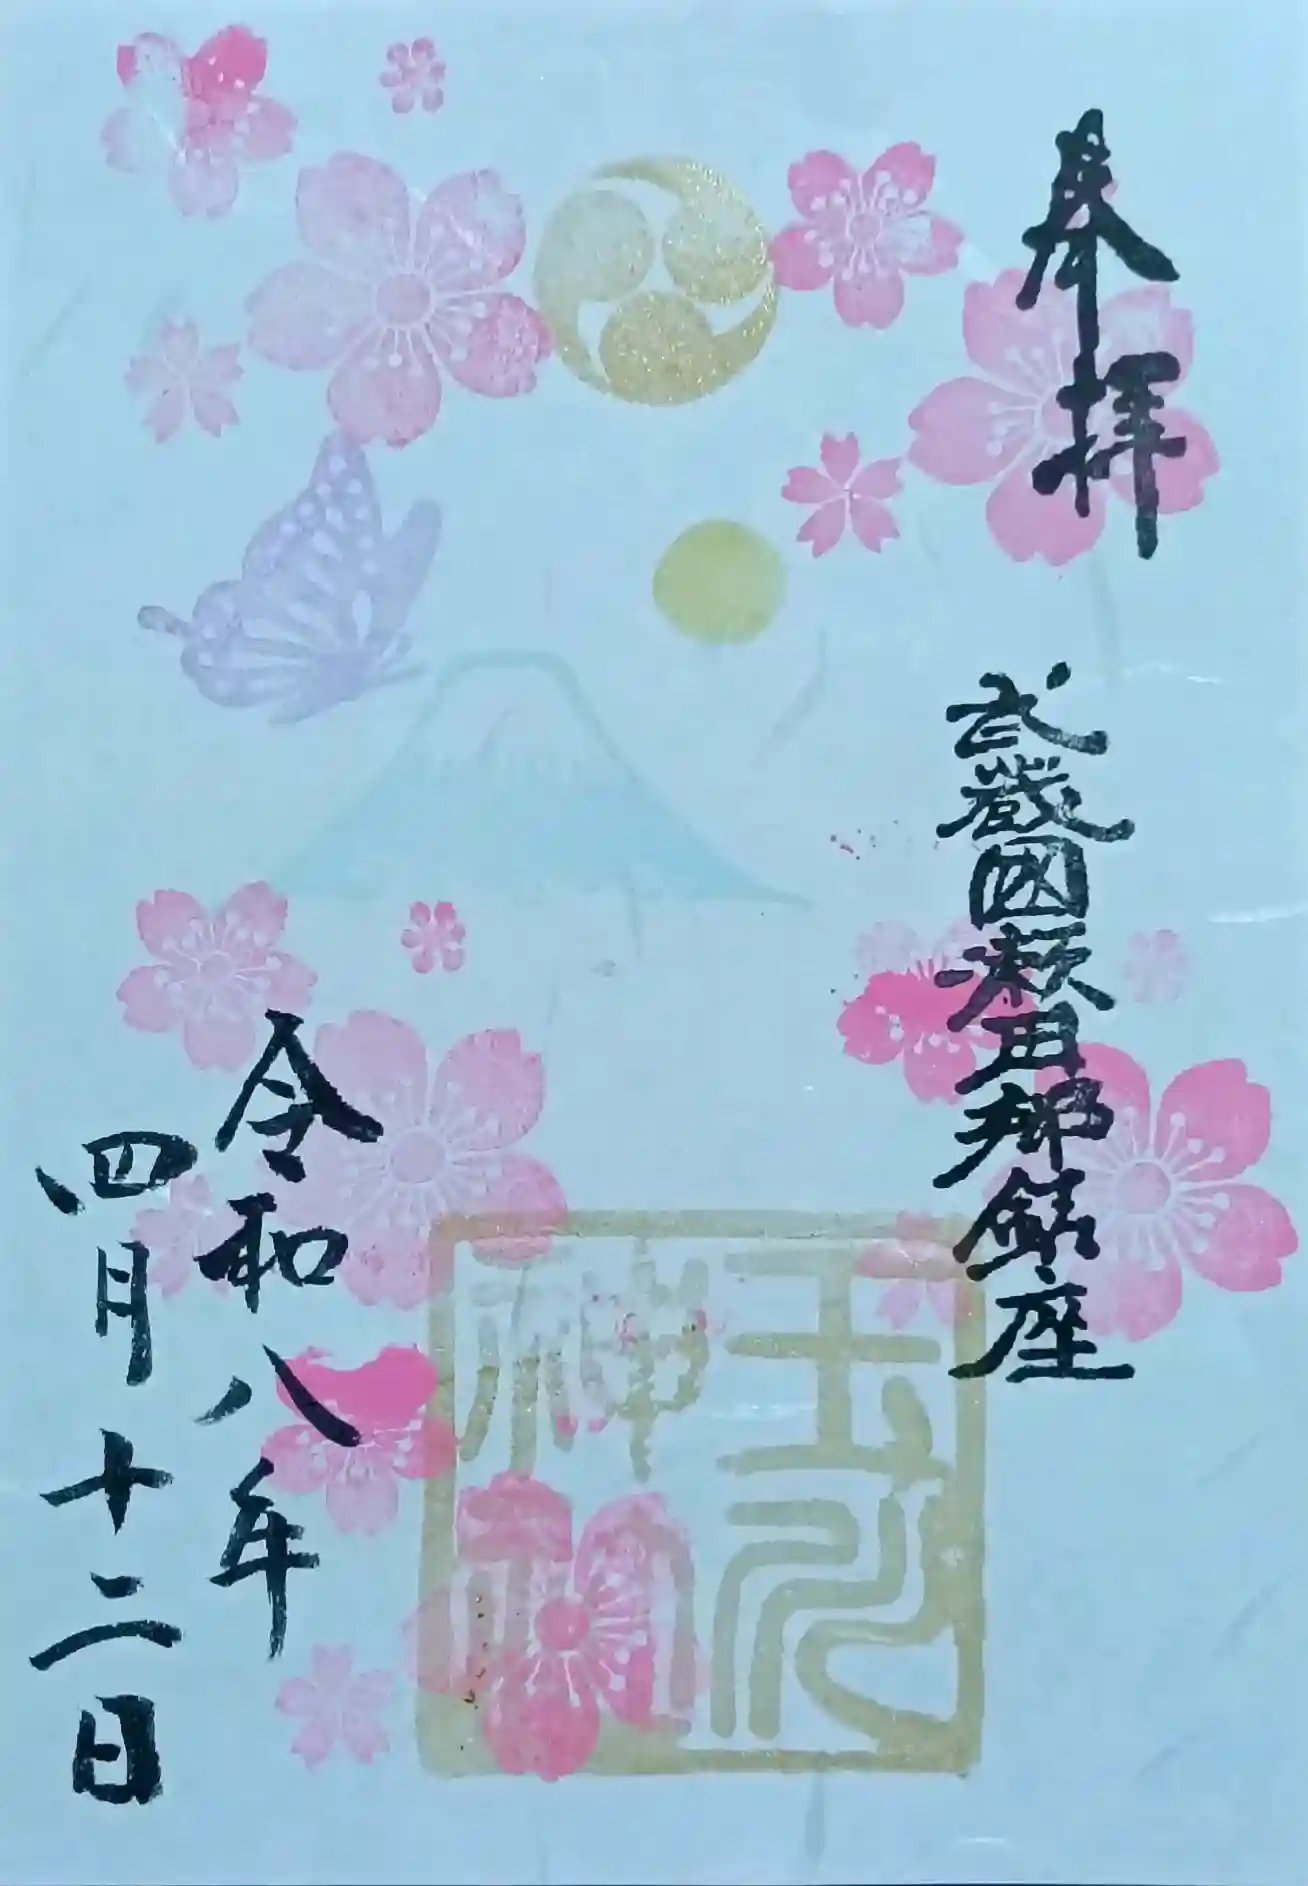 奉拝
武蔵國瀬田郷鎮座
令和八年
四月十二日
玉川
神社